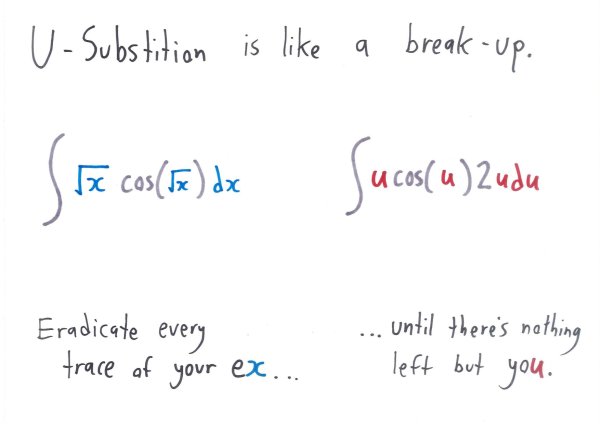 U-Substition is like a break-up.
∫√x cos(√x) dx
∫u cos(u) 2u du
Eradicate every
trace of your ex...
...until there's nothing
left but you.